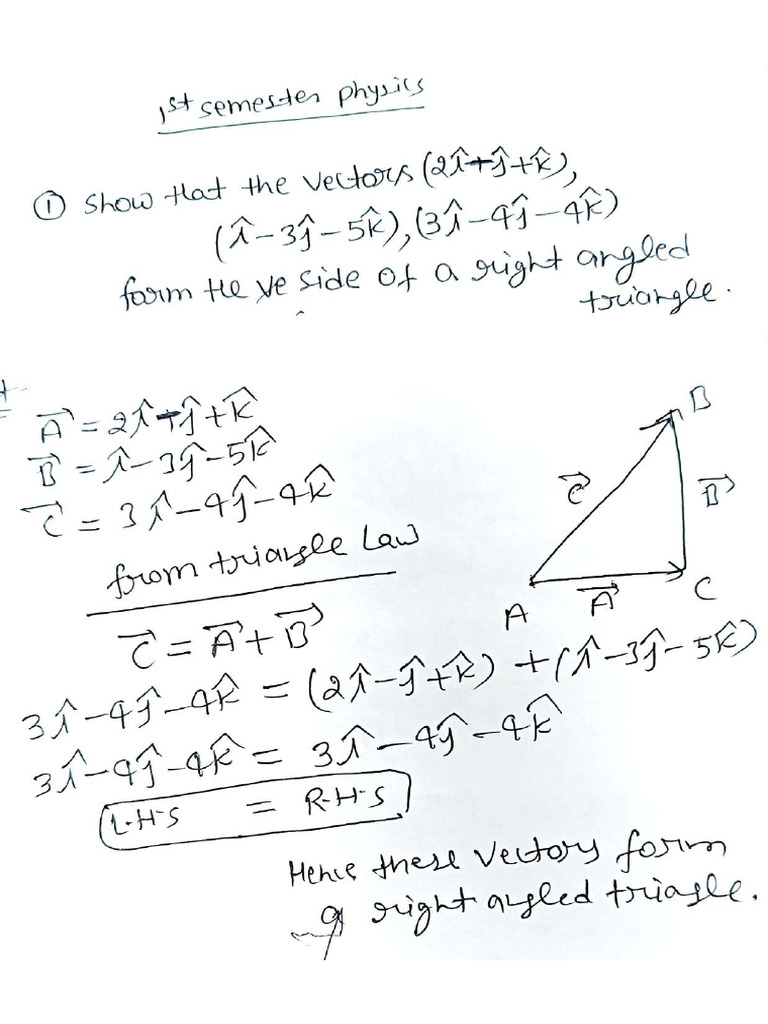 1st semester physics
① Show that the vectors (2î+ĵ+k̂),
(î-3ĵ-5k̂), (3î-4ĵ-4k̂)
form the ve side of a right angled
triangle.
A⃗ = 2î+ĵ+k̂
B⃗ = î-3ĵ-5k̂
C⃗ = 3î-4ĵ-4k̂
from triangle Law
C⃗ = A⃗+B⃗
3î-4ĵ-4k̂ = (2î-ĵ+k̂) + (î-3ĵ-5k̂)
3î-4ĵ-4k̂ = 3î-4ĵ-4k̂
L.H.S = R.H.S
B
C⃗
B⃗
A
A⃗
C
Hence these vectors form
a right angled triangle.